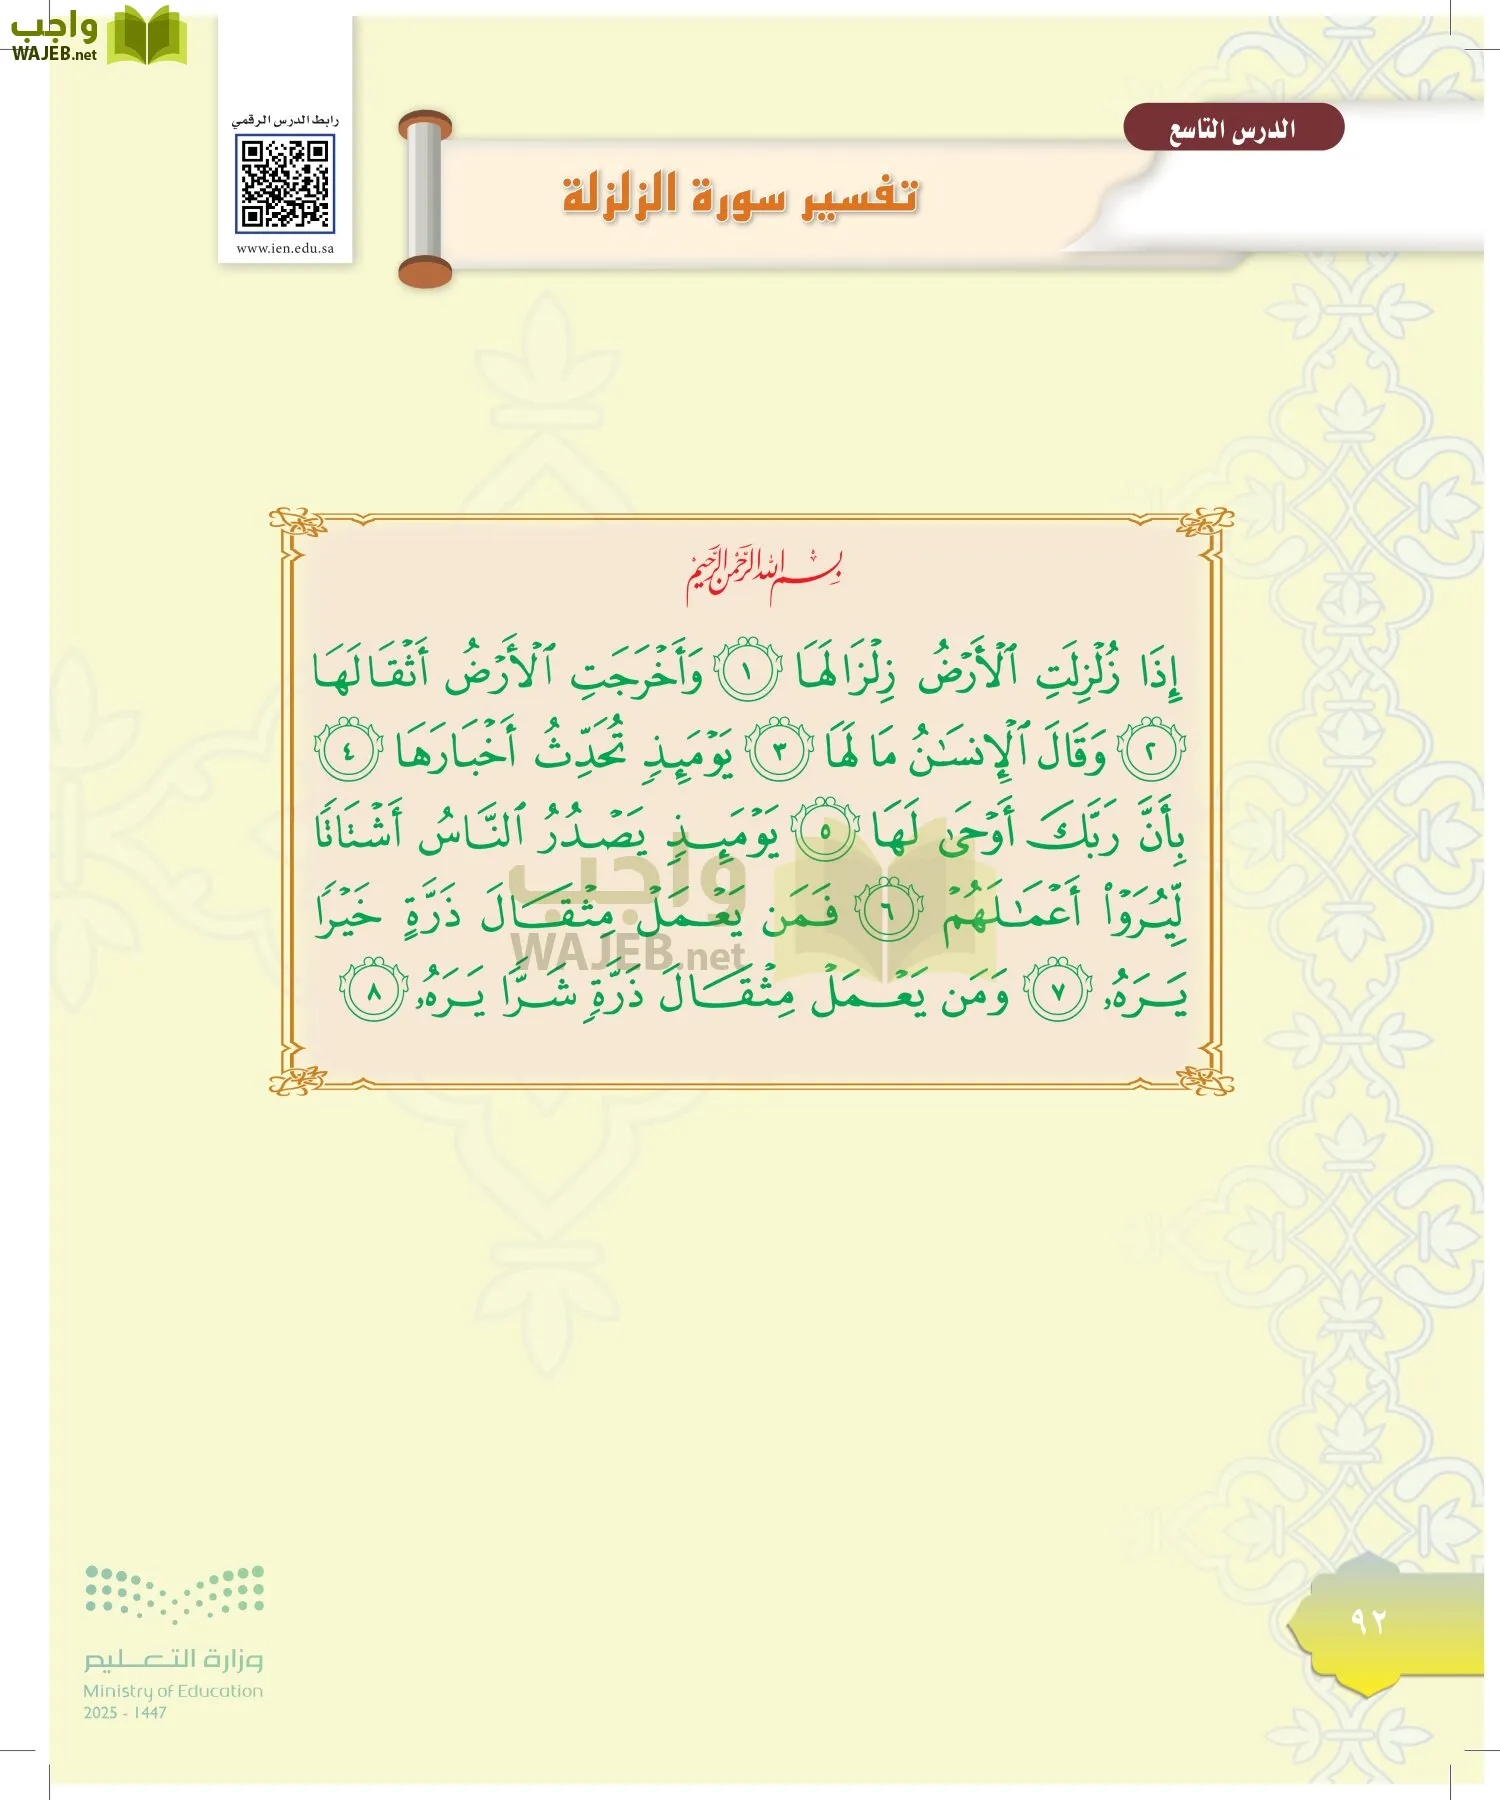 واجب
WAJEB.net
رابط الدرس الرقمي
www.ien.edu.sa
الدرس التاسع
تفسير سورة الزلزلة
بِسْمِ اللَّهِ الرَّحْمَنِ الرَّحِيمِ
إِذَا زُلْزِلَتِ ٱلْأَرْضُ زِلْزَالَهَا ١ وَأَخْرَجَتِ ٱلْأَرْضُ أَثْقَالَهَا
٢ وَقَالَ ٱلْإِنسَـٰنُ مَا لَهَا ٣ يَوْمَئِذٍ تُحَدِّثُ أَخْبَارَهَا ٤
بِأَنَّ رَبَّكَ أَوْحَىٰ لَهَا ٥ يَوْمَئِذٍ يَصْدُرُ ٱلنَّاسُ أَشْتَاتًا
لِّيُرَوْا۟ أَعْمَـٰلَهُمْ ٦ فَمَن يَعْمَلْ مِثْقَالَ ذَرَّةٍ خَيْرًا
يَرَهُۥ ٧ وَمَن يَعْمَلْ مِثْقَالَ ذَرَّةٍ شَرًّا يَرَهُۥ ٨
واجب
WAJEB.net
وزارة التعليم
Ministry of Education
2025 - 1447
٩٢